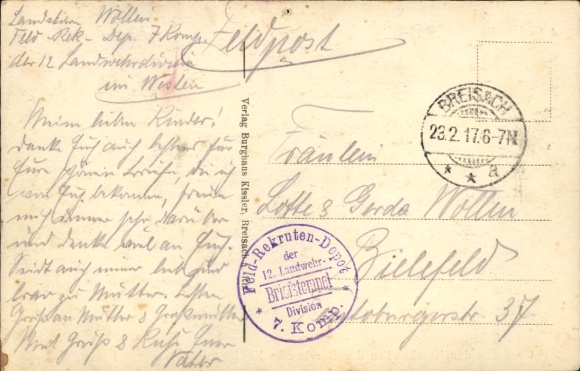 Landsturm Wöllen
Feld-Rek-Dep. 7 Komp.
der 12 Landwehrdivision
im Westen
Feldpost
Meine lieben Kinder!
danke Euch auch bestens für
Eure schönen Briefe, die ich
von Euch bekomme, freue
mich immer sehr darüber
und denke viel an Euch.
Seid auch immer lieb und
brav zu Mutter. Besten
Gruß an Mutter & Großmutter
Mit Gruß & Kuß Euer
Vater
Verlag Burghaus Kissler, Breisach
BREISACH
23.2.17.6-7N
* * a
Fräulein
Lotte & Gerda Wöllen
Bielefeld
37
Feld-Rekruten-Depot
der
12. Landwehr-
Briefstempel
Division
* 7. Komp. *